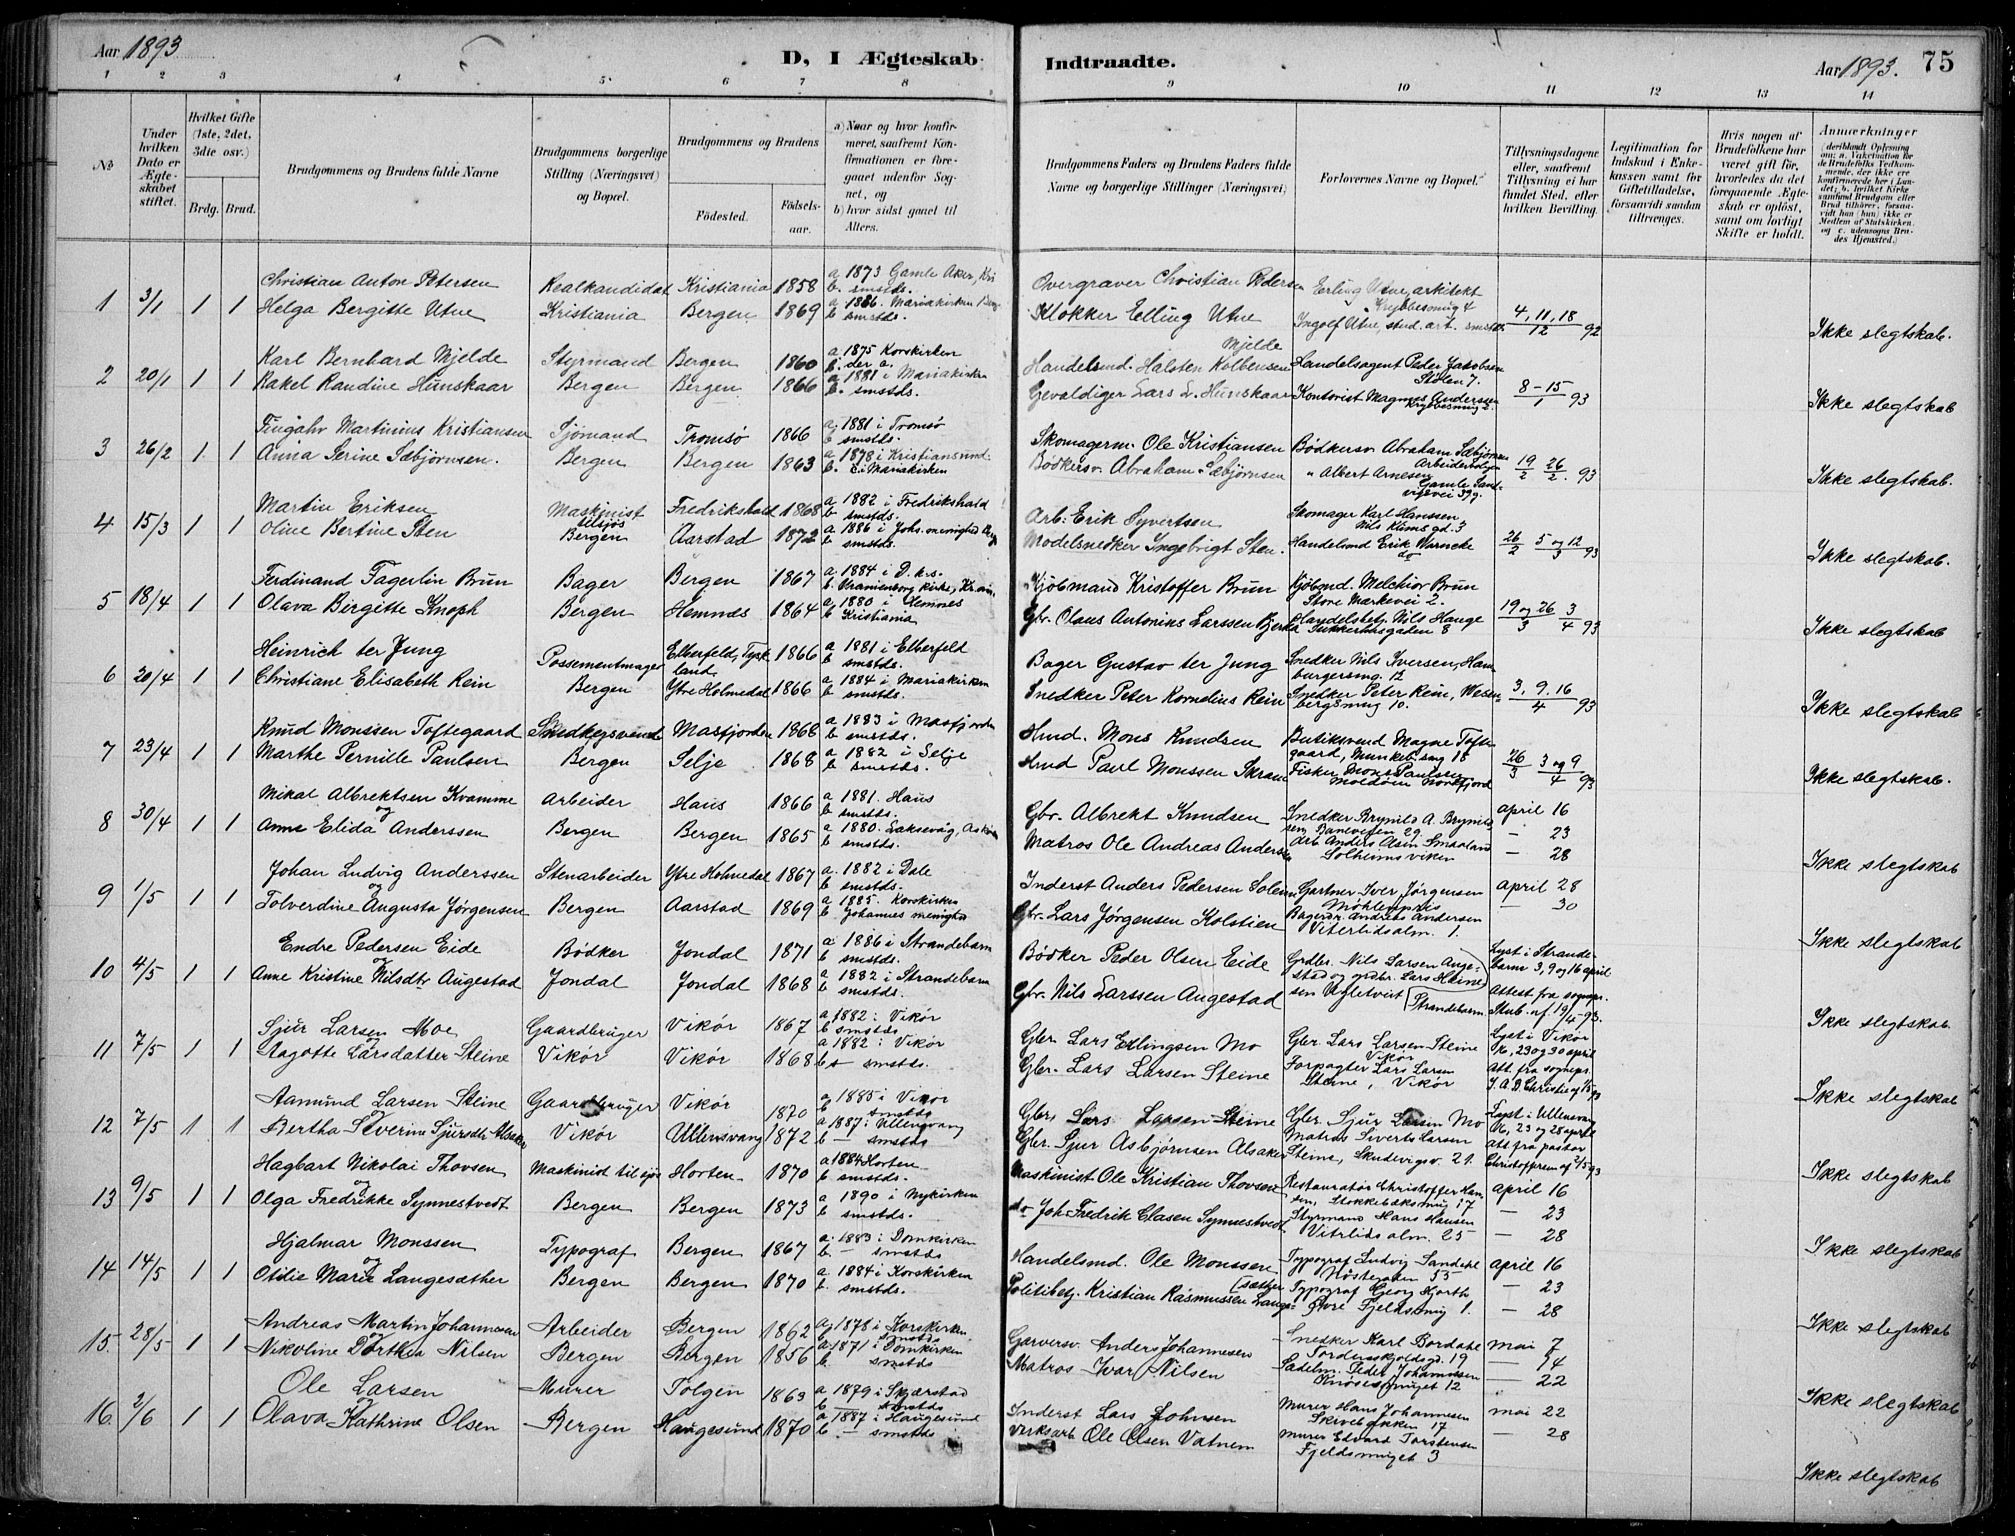 Aar 1893
D, I Ægteskab Indtraadte.
Aar 1893. 75
1 2 3 4 5 6 7 8 9 10 11 12 13 14
No
Under hvilken Dato er Ægteskabet stiftet.
Hvilket Gifte (1ste, 2det, 3die osv.)
Brdg. Brud.
Brudgommens og Brudens fulde Navne
Brudgommens borgerlige Stilling (Næringsvei) og Bopæl.
Brudgommens og Brudens
Födested. Födsels-aar.
a) Naar og hvor konfirmeret, saafremt Konfirmationen er foregaaet udenfor Sognet, og
b) hvor sidst gaaet til Alters.
Brudgommens Faders og Brudens Faders fulde Navne og borgerlige Stillinger (Næringsvei)
Forlovernes Navne og Bopæl.
Tillysningsdagene eller, saafremt Tillysning ei har fundet Sted, efter hvilken Bevilling.
Legitimation for Indskud i Enkekassen samt for Giftetilladelse, forsaavidt saadan tiltrænges.
Hvis nogen af Brudefolkene har været gift för, hvorledes da det foregaaende Ægteskab er oplöst, samt om lovligt Skifte er holdt.
Anmærkninger (deriblandt Oplysning om: a. Vakcination for de Brudefolks Vedkommende, der ikke ere konfirmerede her i Landet; b. hvilket Kirkesamfund Brudgom eller Brud tilhörer, forsaavidt han (hun) ikke er Medlem af Statskirken, og c. udensogns Brudes Hjemsted.)
1 3/1 1 1 Christian Anton Petersen Realkandidat Kristiania 1858 a 1873 Gamle Aker, Kri b. smstds. Overgraver Christian Pedersen Erling Utne, arkitekt Krybbesmug 4
Helga Bergitte Utne Kristiania Bergen 1869 a 1886. Mariakirken b smstds. Klokker Elling Utne Ingolf Utne, stud. art. smstds 4, 11, 18/12 92 Ikke slegtskab.
2 20/1 1 1 Karl Bernhard Mjelde Styrmand Bergen 1860 a 1875 Korskirken b. der a. Handelsmd. Halsten Kolbensen Mjelde Handelsagent Peder Jakobsen Stølen 7.
Rakel Randine Hunskaar Bergen Bergen 1866 a 1881 i Mariakirken b. smstds. Gevaldiger Lars L. Hunskaar Kontorist Magnus Anderssen Krybbesmug 2. 8-15/1 93 Ikke slegtskab
3 26/2 1 1 Martinius Kristiansen Sjömand Tromsö 1866 a 1881 i Tromsö b smstds. Skomagerm. Ole Kristiansen Bödkersv. Abraham Sæbjörnsen Arbeiderboligen
Anna Serine Sæbjörnsen. Bergen Bergen 1863 a 1878 i Kristiansund b. i Mariakirken Bödkersv. Abraham Sæbjörnsen " Albert Arnesen Gamle Sandvigsvei 39g. 19/2 26/2. 93 Ikke slegtskab.
4 15/3 1 1 Martin Eriksen Maskinist tilsjös Fredrikshald 1868 a 1882 i Fredrikshald b smstds. Arb. Erik Syvertsen Skomager Karl Hanssen Nils Klims gd. 3
Oline Bertine Sten Bergen Aarstad 1872 a 1886 i Johs. menighed b smstds. Modelsnedker Ingebrigt Sten. Handelsmd Erik Warncke do 26/2 5 og 12/3 93 Ikke slegtskab.
5 18/4 1 1 Ferdinand Fagerlin Brun Bager Bergen 1867 a 1884 i D.krs. b. Uranienborg kirke, Kr.ania Kjöbmand Kristoffer Brun Kjöbmd. Melchior Brun Store Markevei 2.
Olava Birgitte Knoph Bergen Hemnæs 1864 a 1880 i Hemnæs b Kristiania Gbr. Olaus Antonius Larssen Bjerka Handelsbetj. Nils Hauge Sukkerhusgaden 8 19 og 26/3 3/4 93 Ikke slegtskab
6 20/4 1 1 Heinrich ter Jung Possementmager Elberfeld, Tyskland 1866 a 1881 i Elberfeld b smstds. Bager Gustav ter Jung Snedker Nils Iversen, Hamburgersmg. 12
Christiane Elisabeth Rein Bergen Ytre Holmedal 1866 a 1884 i Mariakirken b smstds. Snedker Peter Kornelius Rein Snedker Peter Rein, Wesenbergsmug 10. 3, 9, 16/4 93 Ikke slegtskab
7 23/4 1 1 Knud Monssen Toftegaard Snedkersvend Masfjorden 1868 a 1883 i Masfjorden b smstds. Hmd. Mons Knudsen Butiksvend Magne Toftegaard, Munkebsmug 18
Marthe Pernille Paulsen Bergen Selje 1868 a 1882 i Selje b smstds. Hmd Paul Monssen Skram Fisker Mons Paulsen Moldöen Nordfjord 26/3 3 og 9/4 93 Ikke slegtskab.
8 30/4 1 1 Mikal Albrektsen Kvamme og Arbeider Haus 1866 a 1881. Haus b smstds. Gbr. Albrekt Knudsen Snedker Brynild A. Brynildsen, Baneveien 29. april 16
Anne Elida Anderssen Bergen Bergen 1865 a 1880. Laksevåg, Askøen b smstds. Matros Ole Andreas Anderssen Arb. Anders Olsen Smaaland Solheimsviken — 23 — 28 Ikke slegtskab
9 1/5 1 1 Johan Ludvig Anderssen og Stenarbeider Ytre Holmedal 1867 a. 1882 i Dale b smstds. Inderst Anders Pedersen Solem Gartner Iver Jörgensen Möhlenpris april 28
Tolverdine Augusta Jörgensen Bergen Aarstad 1869 a 1885. Korskirken b Johannes menighed Gbr. Lars Jörgensen Kolstien Bagerdr. Andreas Andersen Viterlidsalm. 1. — 30 Ikke slegtskab
10 4/5 1 1 Endre Pedersen Eide og Bödker Jondal 1871 a 1886 i Strandebarm b smstds. Bödker Peder Olsen Eide Grdbr. Nils Larsen Augestad og grdbr. Lars Heinesen Ugletveit Strandebarm. Lyst i Strandebarm 3, 9 og 16 april
Anne Kristine Nilsdtr Augestad Jondal Jondal 1868 a 1882 i Strandebarm b smstds. Gbr. Nils Larssen Augestad Attest fra sognepr. Stub. af 19/4 93. Ikke slegtskab
11 7/5 1 1 Sjur Larsen Moe Gaardbruger Vikör 1867 a 1882 i Vikör b smstds. Gbr. Lars Erlingsen Mo Gbr. Lars Larsen Steine Vikör Lyst i Vikör 16, 23 og 30 april
Aagotte Larsdatter Steine Vikör Vikör 1868 a 1882 i Vikör b smstds. Gbr. Lars Larsen Steine Forpagter Lars Larsen Steine, Vikör Att. fra sognepr. J. A. D. Christie Ikke slegtskab
12 7/5 1 1 Aamund Larsen Steine Gaardbruger Vikör 1870 a 1885 i Vikör b smstds Gbr. Lars Larsen Steine Gbr. Sjur Larsen Mo Lyst i Ullensvang 16, 23 og 28 april
Bertha Severine Sjursdtr Alsaker Vikör Ullensvang 1872 a 1887 i Ullensvang b — smstds Gbr. Sjur Asbjörnsen Alsaker Matros Sivert Larsen Steine, Skudevigsv. 29. att fra pastor Christoffersen af 2/5 93 Ikke slegtskab
13 9/5 1 1 Hagbart Nikolai Thovsen Maskinist til sjös Horten 1870 a 1884 Horten b smstds. Maskinist Ole Kristian Thovsen Restauratör Christoffer Hansen, Stokkebæksmug 17 april 16
Olga Fredrikke Synnestvedt Bergen Bergen 1873 a 1890 i Nykirken b smstds. do Joh. Fredrik Clasen Synnestvedt Styrmand Hans Hansen Vitrlidsalm. 25 — 23 — 28 Ikke slegtskab
14 14/5 1 1 Hjalmar Monssen og Typograf Bergen 1867 a. 1883 i Domkirken b. — smstds Handelsmd. Ole Monssen Typograf Ludvig Sandahl Nöstegaden 55 april 16
Otilie Marie Langesæther Bergen Bergen 1870 a 1884 i Korskirken b smstds. Politibetj. Kristian Rasmussen Langesæther Typograf Georg Hjorth Övre Fjeldsmug 1. — 23 — 28 Ikke slegtskab
15. 28/5 1 1 Andreas Martin Johannesen og Arbeider Bergen 1862 a 1878 i Korskirken b smstds Garversv. Anders Johannesen Snedker Karl Bordahl Tordenskjoldsgd. 19 mai 7
Nikoline Dorthea Nilsen Bergen Bergen 1856 a 1871 i Domkirken b. smstds Matros Ivar Nilsen Sadelm. Peder Johannesen Knösesmuget 12 — 14 — 22 Ikke slegtskab
16. 2/6 1 1 Ole Larsen Murer Tolgen 1863 a 1879 i Skjærstad b smstds Inderst Lars Johnsen Murer Hans Johannesen Skivebakken 17 mai 22
Olava Kathrine Olsen Bergen Haugesund 1870 a 1887 i Haugesund b. — smstds Verksarb Ole Olsen Vatnem Murer Edvard Torstensen Fjeldsmuget 3 — 28 Ikke slegtskab